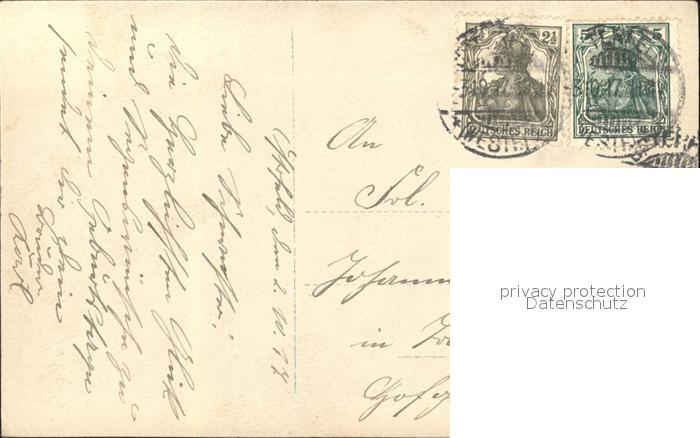 den 2. 10. 17
Liebe Schwester!
Die herzlichsten Glück
und Segenswünsche zu
Deinem Geburtstage
sendet dir Dein
Bruder
Karl
An
Frl.
Johann
in
2½
DEUTSCHES REICH
5 5
DEUTSCHES REICH
10.17
(WESTF
10.17
privacy protection
Datenschutz